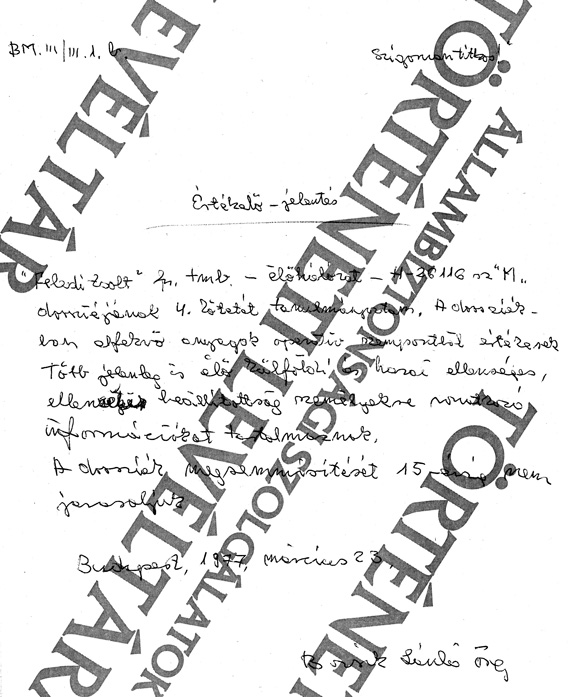 BM. III/III. 1. b.
Szigorúan titkos!
Értékelő - jelentés
"Feledi Zsolt" fn. tmb. - - H-36116 sz "M"
dossziéjának 4. kötetét tanulmányoztam. A dossziék-
ban elfekvő anyagok operatív szempontból értékesek
Több jelenleg is élő külföldi és hazai ellenséges,
beállítottság személyekre vonatkozó
információkat tartalmaznak.
A dossziék megsemmisítését 15 évig nem
javasoljuk
Budapest, 1977, március 23
László őrg
ÁLLAMBIZTONSÁGI SZOLGÁLATOK
TÖRTÉNETI LEVÉLTÁRA